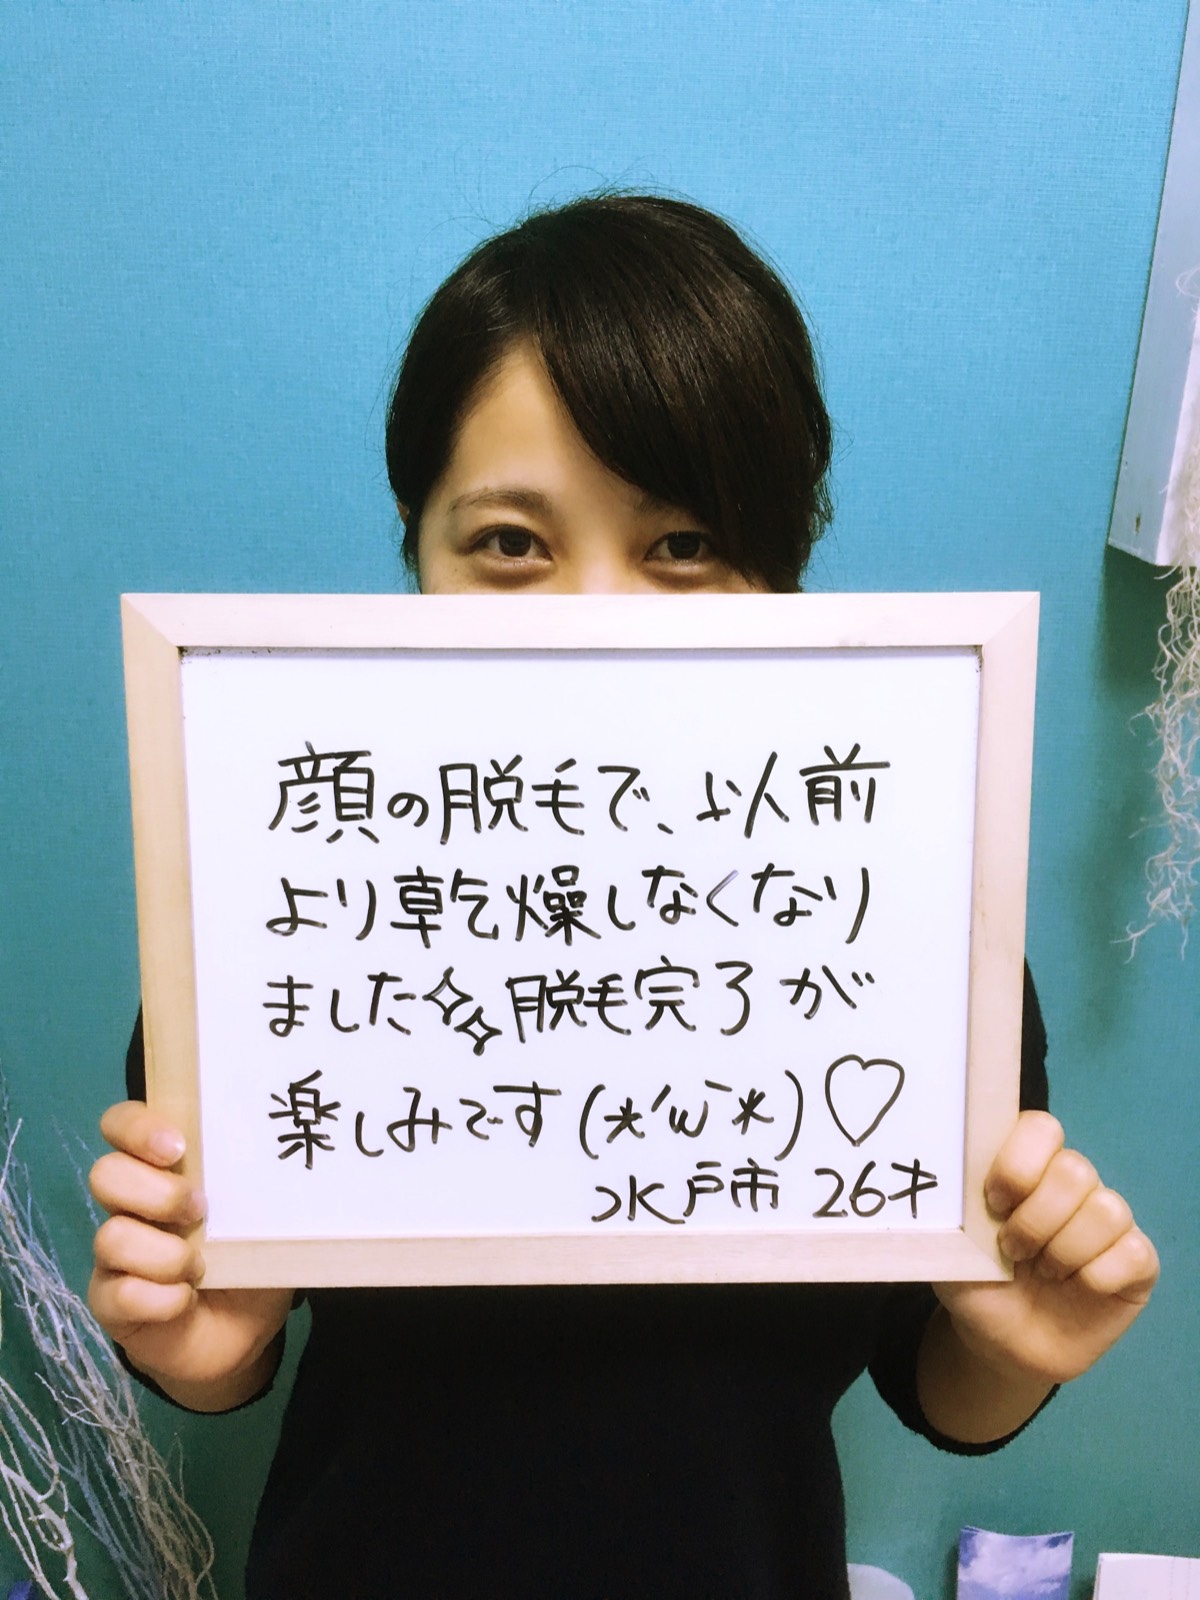 顔の脱毛で、以前
より乾燥しなくなり
ました✧✧脱毛完了が
楽しみです(*´ω`*)♡
水戸市 26才